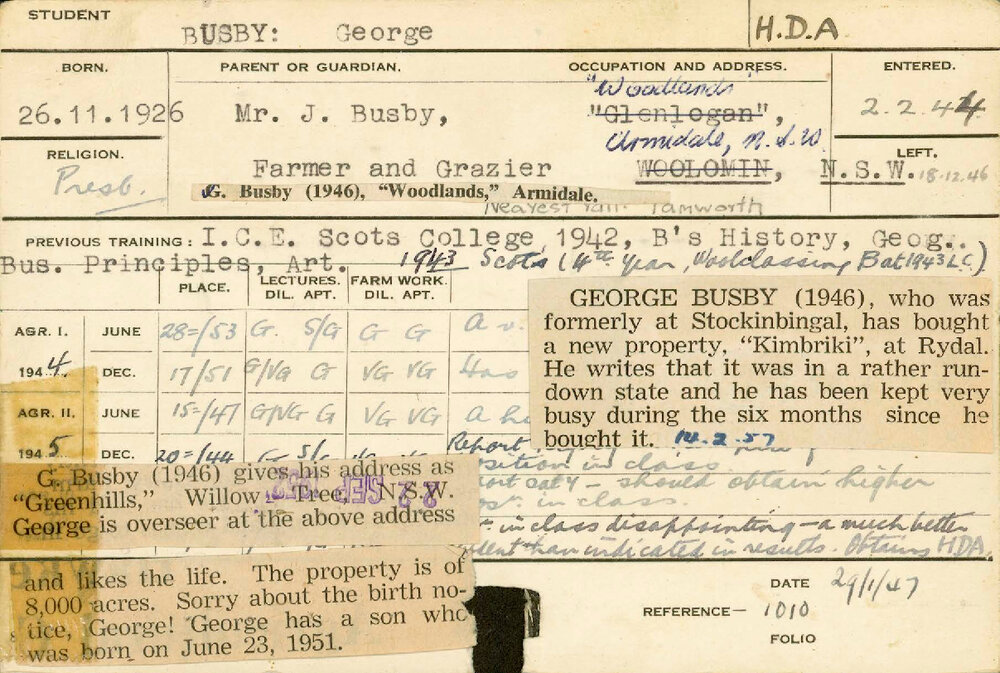 STUDENT
BUSBY: George
H.D.A
BORN.
PARENT OR GUARDIAN.
OCCUPATION AND ADDRESS.
ENTERED.
"Woodlands"
26.11.1926
Mr. J. Busby,
"Glenlogan",
2.2.44
Armidale, N.S.W
RELIGION.
LEFT.
Presb.
Farmer and Grazier
WOOLOMIN, N.S.W.
18.12.46
G. Busby (1946), "Woodlands," Armidale.
Nearest Tamworth
PREVIOUS TRAINING: I.C.E. Scots College 1942, B's History, Geog..
Bus. Principles, Art.
1943 Scots (4th year, Woolclassing B at 1943 L.C)
PLACE.
LECTURES.
DIL. APT.
FARM WORK.
DIL. APT.
AGR. I.
JUNE
28=/53 G. S/G G G
A
1944.
DEC.
17/51 G/VG G VG VG
Has
AGR. II.
JUNE
15=/47 G/VG G VG VG
a
1945
DEC.
20=/44 G S/G
Report
GEORGE BUSBY (1946), who was
formerly at Stockinbingal, has bought
a new property, "Kimbriki", at Rydal.
He writes that it was in a rather run-
down state and he has been kept very
busy during the six months since he
bought it.
14.2.57
position in class
should obtain higher
in class.
in class disappointing - a much better
student than indicated in results. Obtains HDA.
G. Busby (1946) gives his address as
"Greenhills," Willow Tree, N.S.W.
George is overseer at the above address
22 SEP 1952
and likes the life. The property is of
8,000 acres. Sorry about the birth no-
tice, George! George has a son who
was born on June 23, 1951.
DATE 29/1/47
REFERENCE— 1010
FOLIO